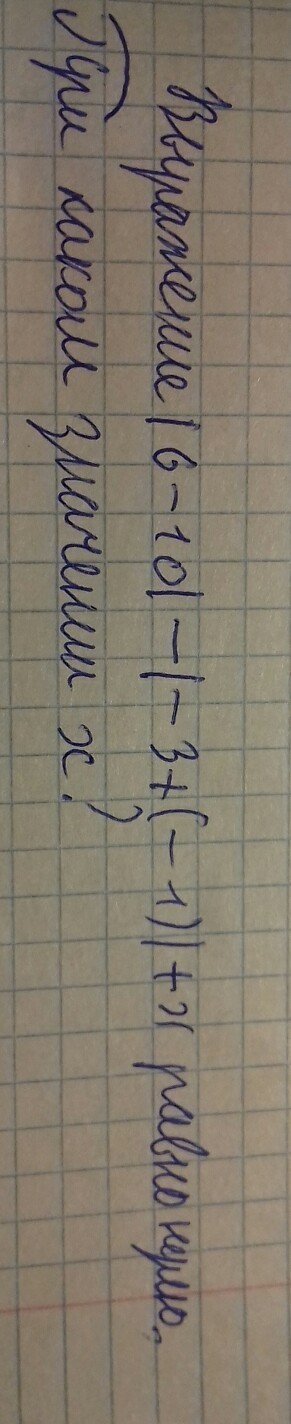 Выражение |6-10|-|-3+(-1)|+x равно нулю.
При каком значении x?